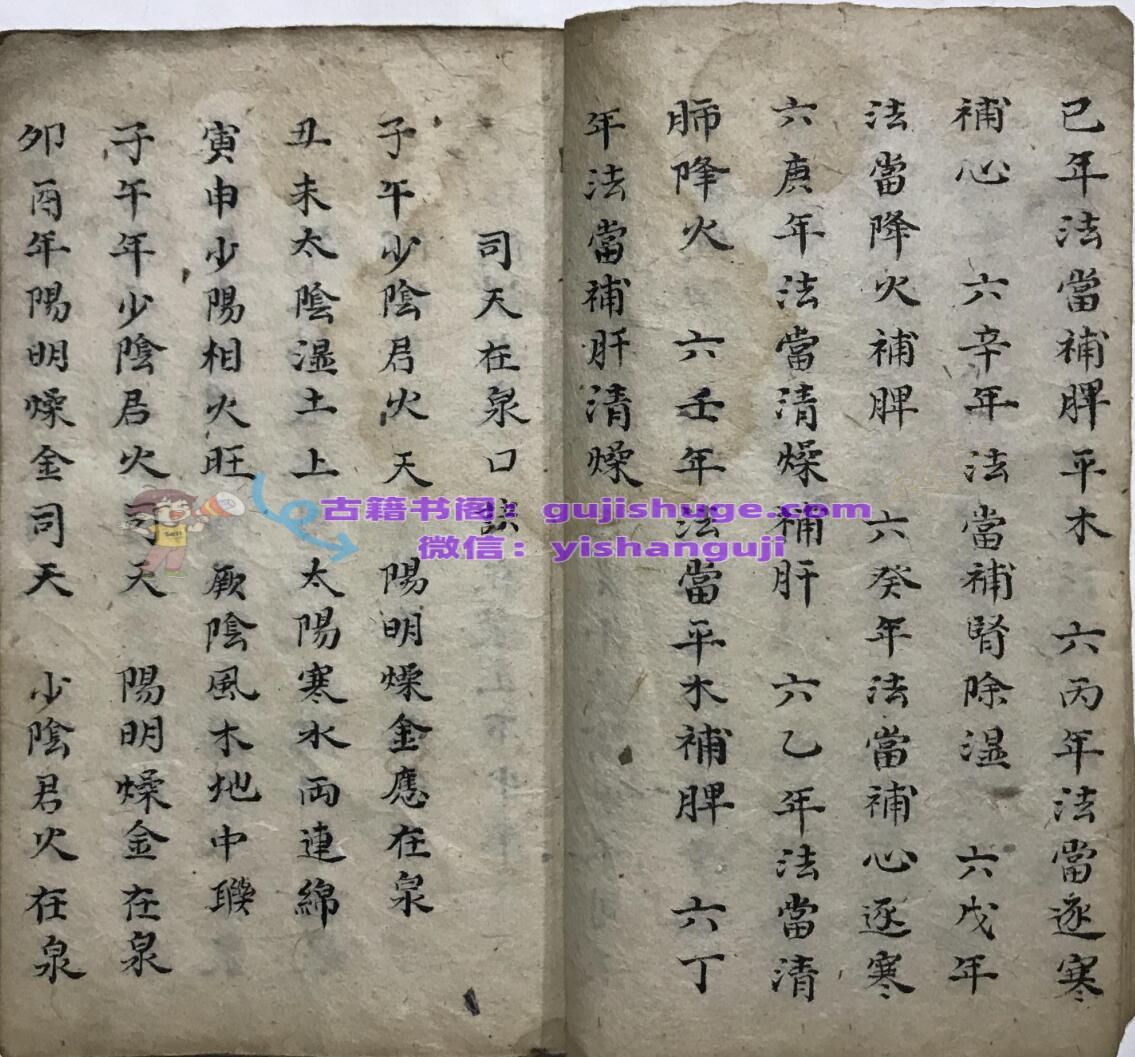 已年法當補脾平木 六丙年法當逐寒
補心 六辛年法當補腎除湿 六戊年
法當降火補脾 六癸年法當補心逐寒
六庚年法當清燥補肝 六乙年法當清
肺降火 六壬年法當平木補脾 六丁
年法當補肝清燥
司天在泉口訣
子午少陰君火天 陽明燥金應在泉
丑未太陰湿土上 太陽寒水両連綿
寅申少陽相火旺 厥陰風木地中聯
子午年少陰君火司天 陽明燥金在泉
卯酉年陽明燥金司天 少陰君火在泉
古籍书阁：gujishuge.com
微信：yishanguji